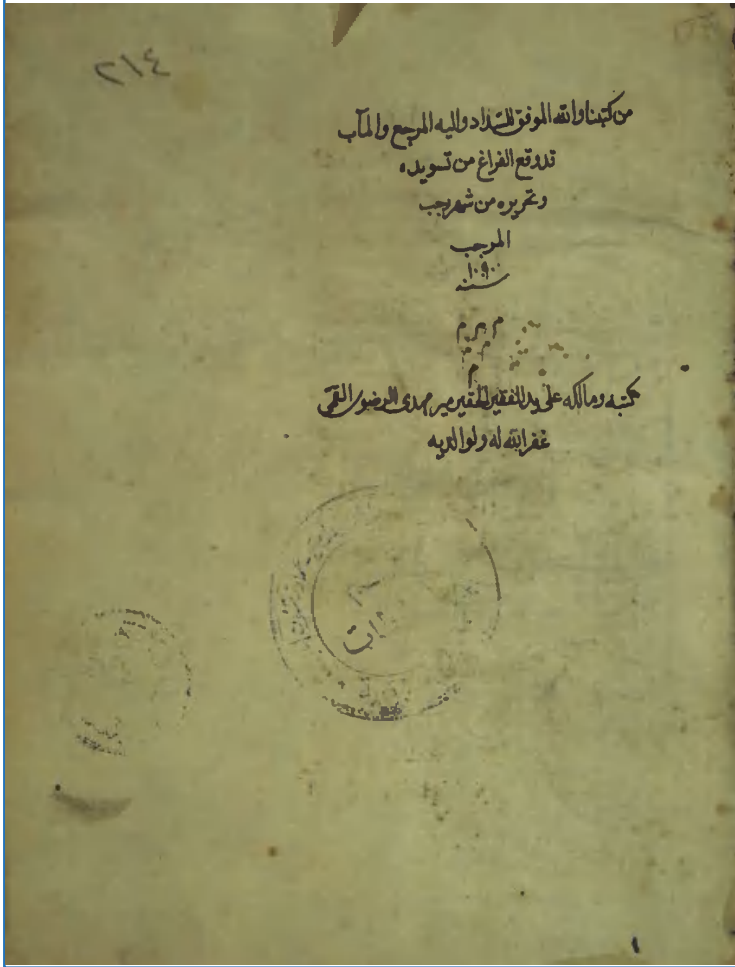 ٢١٤
من كتبنا والله الموفق للسداد واليه المرجع والمآب
قد وقع الفراغ من تسويده
وتحريره من شهر رجب
المرجب
سنه ١٠٩٠
م م م
م م
م
كتبه ومالكه على يد الفقير الحقير مير مهدى الرضوى القمى
غفر الله له ولوالديه
١